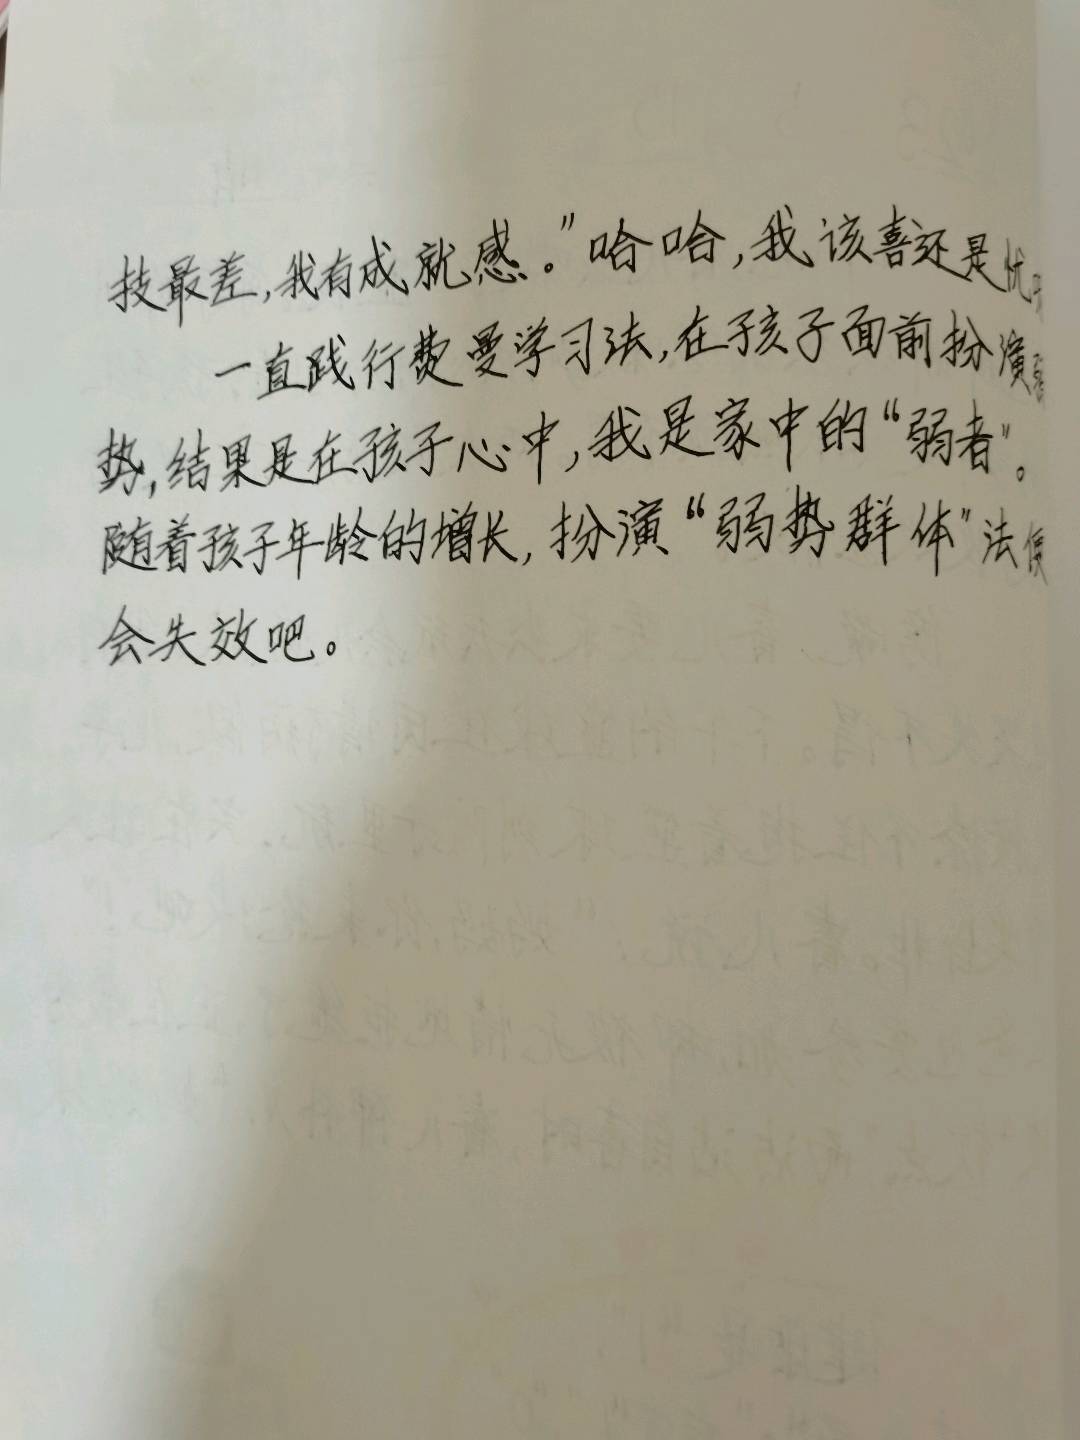 技最差,我有成就感。”哈哈,我该喜还是忧
一直践行费曼学习法,在孩子面前扮演
势,结果是在孩子心中,我是家中的“弱者”。
随着孩子年龄的增长,扮演“弱势群体”法便
会失效吧。